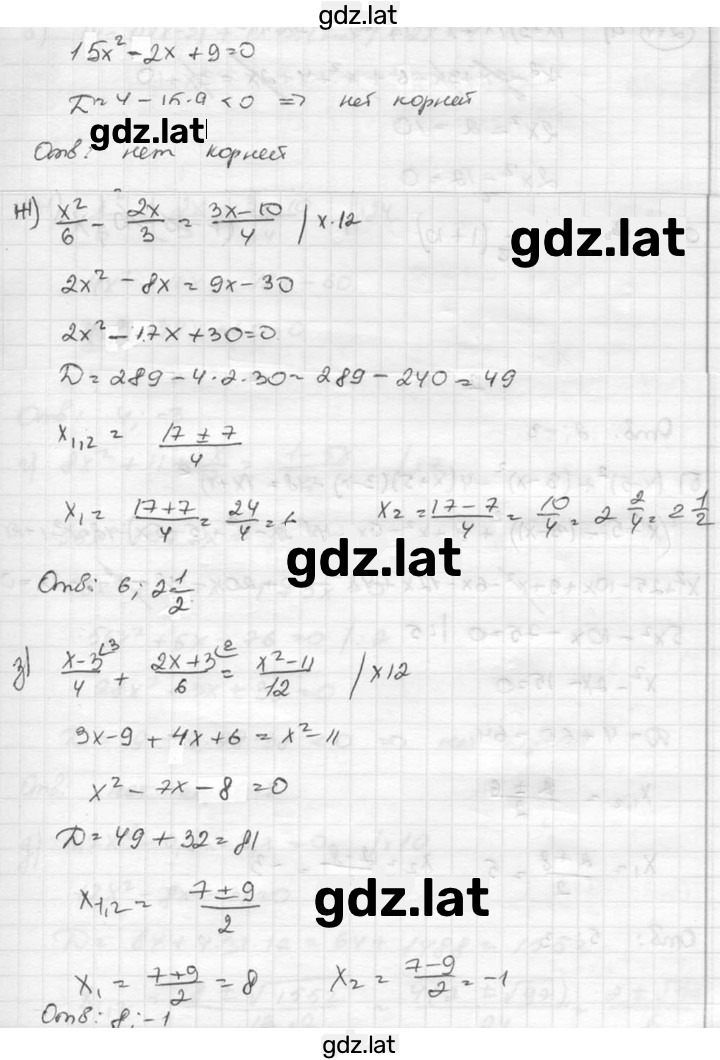 gdz.lat
15x² - 2x + 9 = 0
D = 4 - 15·9 < 0 => нет корней
gdz.lat
Отв: нет корней
ж) x²/6 - 2x/3 = (3x-10)/4 | x·12
gdz.lat
2x² - 8x = 9x - 30
2x² - 17x + 30 = 0
D = 289 - 4·2·30 = 289 - 240 = 49
x₁,₂ = (17 ± 7)/4
x₁ = (17+7)/4 = 24/4 = 6 x₂ = (17-7)/4 = 10/4 = 2 2/4 = 2 1/2
gdz.lat
Отв: 6; 2 1/2
з) (x-3)/4 + (2x+3)/6 = (x²-11)/12 | x12
3x-9 + 4x+6 = x²-11
x² - 7x - 8 = 0
D = 49 + 32 = 81
x₁,₂ = (7 ± 9)/2
gdz.lat
x₁ = (7+9)/2 = 8 x₂ = (7-9)/2 = -1
Отв: 8; -1
gdz.lat